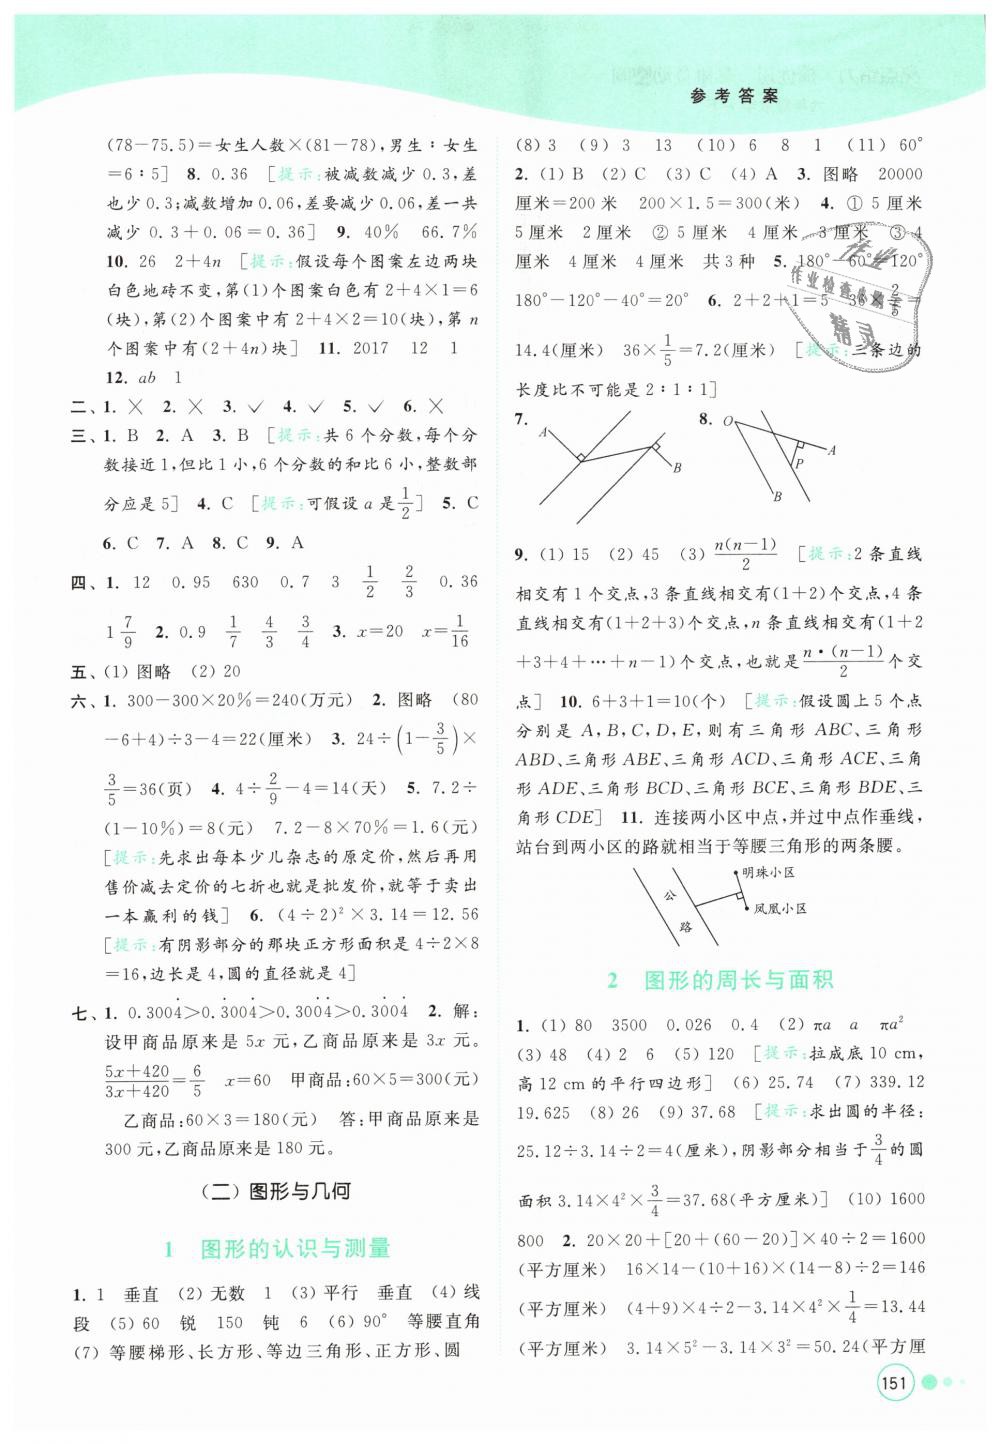 参考答案
(78－75.5)＝女生人数×(81－78),男生∶女生
＝6∶5] 8. 0.36 [提示:被减数减少 0.3,差
也少 0.3;减数增加 0.06,差要减少 0.06,差一共
减少 0.3＋0.06＝0.36] 9. 40% 66.7%
10. 26 2＋4n [提示:假设每个图案左边两块
白色地砖不变,第(1)个图案白色有 2＋4×1＝6
(块),第(2)个图案中有 2＋4×2＝10(块),第 n
个图案中有(2＋4n)块] 11. 2017 12 1
12. ab 1
二、1. × 2. × 3. ✓ 4. ✓ 5. ✓ 6. ×
三、1. B 2. A 3. B [提示:共 6 个分数,每个分
数接近 1,但比 1 小,6 个分数的和比 6 小,整数部
分应是 5] 4. C [提示:可假设 a 是 1/2] 5. C
6. C 7. A 8. C 9. A
四、1. 12 0.95 630 0.7 3 1/2 2/3 0.36
1 7/9 2. 0.9 1/7 4/3 3/4 3. x＝20 x＝1/16
五、(1) 图略 (2) 20
六、1. 300－300×20%＝240(万元) 2. 图略 (80
－6＋4)÷3－4＝22(厘米) 3. 24÷(1－3/5)×
3/5＝36(页) 4. 4÷2/9－4＝14(天) 5. 7.2÷
(1－10%)＝8(元) 7.2－8×70%＝1.6(元)
[提示:先求出每本少儿杂志的原定价,然后再用
售价减去定价的七折也就是批发价,就等于卖出
一本赢利的钱] 6. (4÷2)²×3.14＝12.56
[提示:有阴影部分的那块正方形面积是 4÷2×8
＝16,边长是 4,圆的直径就是 4]
七、1. 0.3004̇＞0.3̇004̇＞0.30̇04̇＞0.3004 2. 解:
设甲商品原来是 5x 元,乙商品原来是 3x 元。
5x＋420/3x＋420＝6/5 x＝60 甲商品:60×5＝300(元)
乙商品:60×3＝180(元) 答:甲商品原来是
300 元,乙商品原来是 180 元。
(二) 图形与几何
1 图形的认识与测量
1. 1 垂直 (2) 无数 1 (3) 平行 垂直 (4) 线
段 (5) 60 锐 150 钝 6 (6) 90° 等腰直角
(7) 等腰梯形、长方形、等边三角形、正方形、圆
(8) 3 (9) 3 13 (10) 6 8 1 (11) 60°
2. (1) B (2) C (3) C (4) A 3. 图略 20000
厘米＝200 米 200×1.5＝300(米) 4. ① 5 厘米
5 厘米 2 厘米 ② 5 厘米 4 厘米 3 厘米 ③ 4
厘米 4 厘米 4 厘米 共 3 种 5. 180°－60°＝120°
180°－120°－40°＝20° 6. 2＋2＋1＝5 36×2/5＝
14.4(厘米) 36×1/5＝7.2(厘米) [提示:三条边的
长度比不可能是 2∶1∶1]
7. A B 8. O A P B
9. (1) 15 (2) 45 (3) n(n－1)/2 [提示:2 条直线
相交有 1 个交点,3 条直线相交有(1＋2)个交点,4 条
直线相交有(1＋2＋3)个交点,n 条直线相交有(1＋2
＋3＋4＋…＋n－1)个交点,也就是 n·(n－1)/2 个交
点] 10. 6＋3＋1＝10(个) [提示:假设圆上 5 个点
分别是 A,B,C,D,E,则有三角形 ABC、三角形
ABD、三角形 ABE、三角形 ACD、三角形 ACE、三角
形 ADE、三角形 BCD、三角形 BCE、三角形 BDE、三
角形 CDE] 11. 连接两小区中点,并过中点作垂线,
站台到两小区的路就相当于等腰三角形的两条腰。
明珠小区
公
凤凰小区
路
2 图形的周长与面积
1. (1) 80 3500 0.026 0.4 (2) πa a πa²
(3) 48 (4) 2 6 (5) 120 [提示:拉成底 10 cm,
高 12 cm 的平行四边形] (6) 25.74 (7) 339.12
19.625 (8) 26 (9) 37.68 [提示:求出圆的半径:
25.12÷3.14÷2＝4(厘米),阴影部分相当于 3/4 的圆
面积 3.14×4²×3/4＝37.68(平方厘米)] (10) 1600
800 2. 20×20＋[20＋(60－20)]×40÷2＝1600
(平方厘米) 16×14－(10＋16)×(14－8)÷2＝146
(平方厘米) (4＋9)×4÷2－3.14×4²×1/4＝13.44
(平方厘米) 3.14×5²－3.14×3²＝50.24(平方厘
151
作业
作业检查小助手
精灵